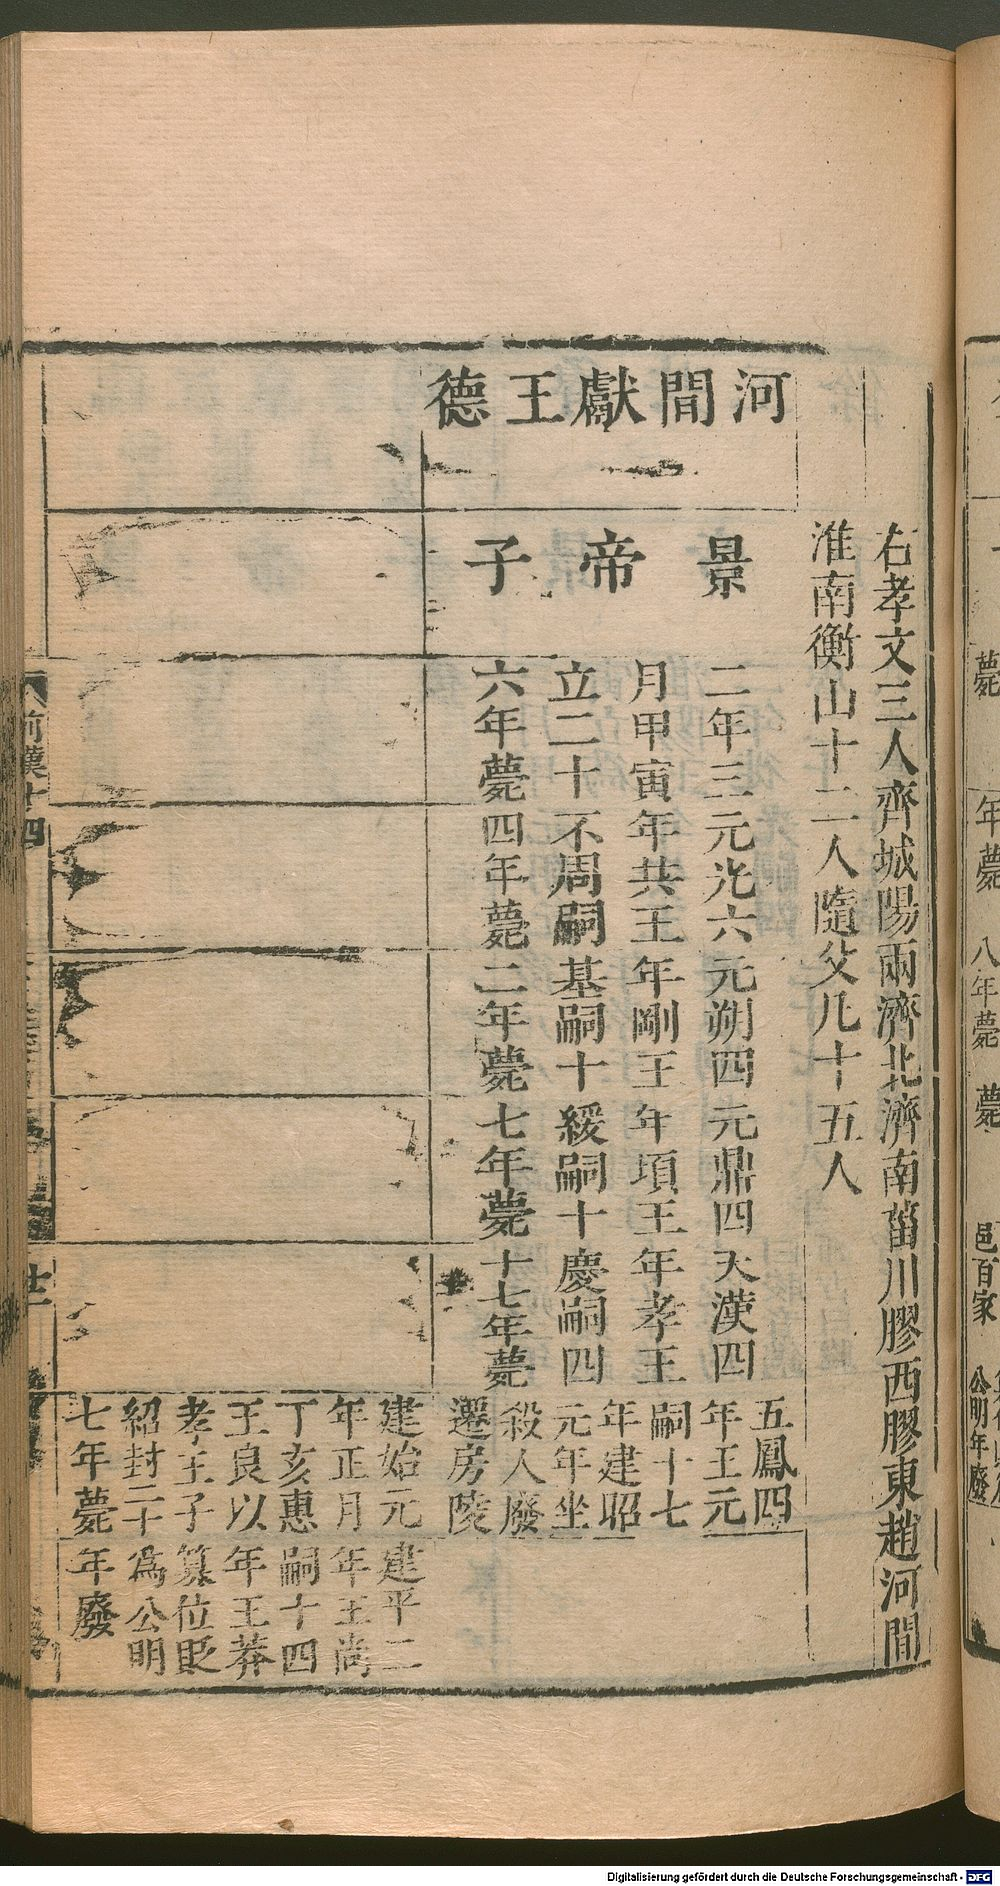 右孝文三人齊城陽兩濟北濟南菑川膠西膠東趙河間
淮南衡山十二人隨父凡十五人
河間獻王德
景帝子
二年三
月甲寅
立二十
六年薨
元光六
年共王
不周嗣
四年薨
元朔四
年剛王
基嗣十
二年薨
元鼎四
年頃王
緩嗣十
七年薨
天漢四
年孝王
慶嗣四
十七年薨
五鳳四
年王元
嗣十七
年建昭
元年坐
殺人廢
遷房陵
建始元
年正月
丁亥惠
王良以
孝王子
紹封二十
七年薨
建平二
年王尚
嗣十四
年王莽
簒位貶
為公明
年廢
前漢十四
薨
年薨
八年薨
薨
邑百家
公明年廢
Digitalisierung gefördert durch die Deutsche Forschungsgemeinschaft - DFG